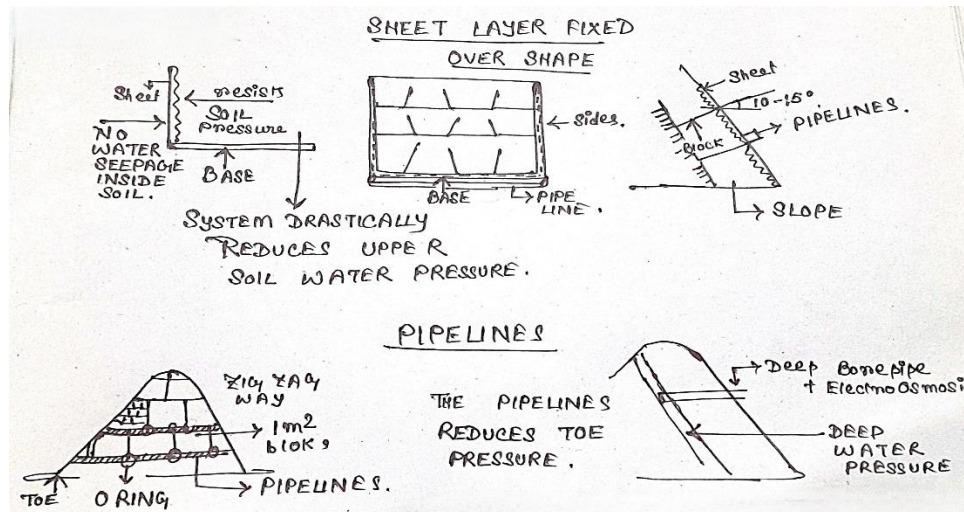 SHEET LAYER FIXED
OVER SHAPE
Sheet
resists
SOIL
Pressure
NO
WATER
SEEPAGE
INSIDE
SOIL.
BASE
SYSTEM DRASTICALLY
REDUCES UPPER
SOIL WATER PRESSURE.
Sides.
BASE
PIPE
LINE.
Sheet
10-15°
PIPELINES.
Block
SLOPE
PIPELINES
ZIG ZAG
WAY
1m2
bloks
PIPELINES.
TOE
O RING
THE PIPELINES
REDUCES TOE
PRESSURE.
Deep Borepipe
+ ElectroOsmosi
DEEP
WATER
PRESSURE